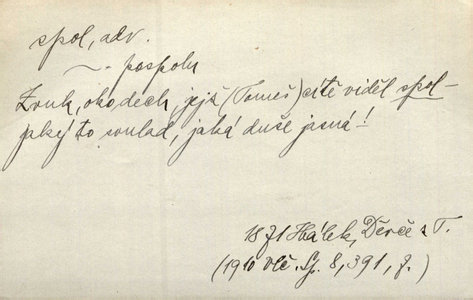 spol, adv.
~. pospolu
Zvuk, oko, dech, jejž (Tomeš) cítě viděl spol –
jaký to soulad, jaká duše jasná!
1871 Hálek, Děvče z T.
(1910 Vlč. Lp. 8, 391, J.)